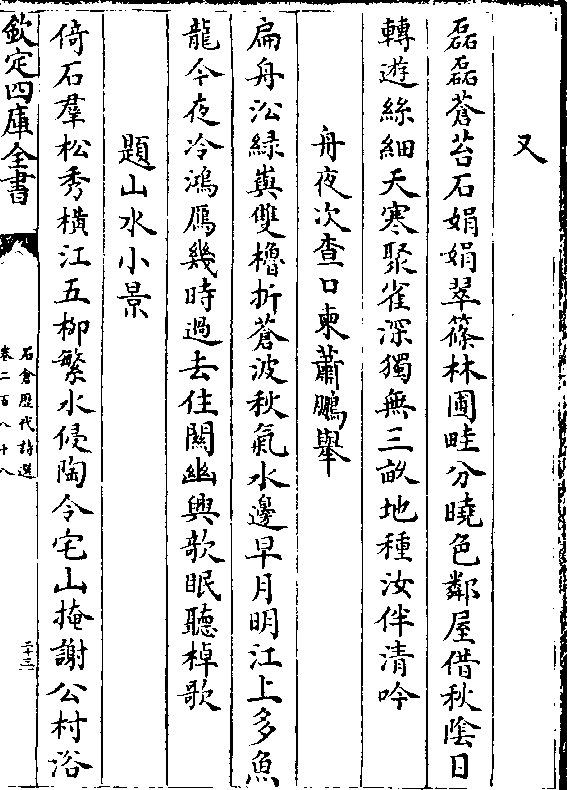 又
磊磊蒼苔石娟娟翠篠林圃畦分曉色鄰屋借秋陰日
轉遊絲細天寒聚雀深獨無三畝地種汝伴清吟
舟夜次查口柬蕭鵬舉
扁舟㳂緑嶼雙櫓折蒼波秋氣水邊早月明江上多魚
龍今夜冷鴻鴈幾時過去住關幽興欹眠聽棹歌
題山水小景
倚石羣松秀橫江五柳繁水侵陶令宅山掩謝公村浴
欽定四庫全書
石倉歴代詩選
卷二百八十八
二十三